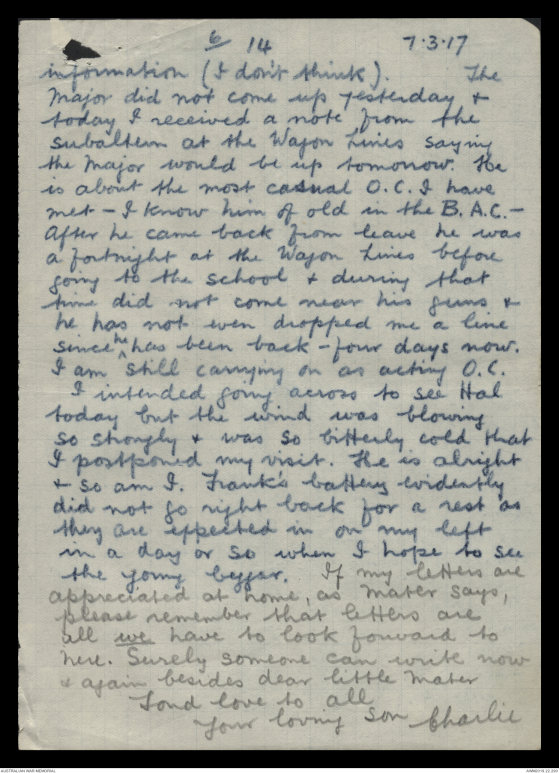 6 14 7.3.17
information (I don't think). The
Major did not come up yesterday &
today I received a note from the
subaltern at the Wagon Lines saying
the Major would be up tomorrow. He
is about the most casual O.C. I have
met - I know him of old in the B.A.C. -
After he came back from leave he was
a fortnight at the Wagon Lines before
going to the school & during that
time did not come near his guns &
he has not even dropped me a line
since he has been back - four days now.
I am still carrying on as acting O.C.
I intended going across to see Hal
today but the wind was blowing
so strongly & was so bitterly cold that
I postponed my visit. He is alright
& so am I. Frank's battery evidently
did not go right back for a rest as
they are expected in on my left
in a day or so when I hope to see
the young beggar. If my letters are
appreciated at home, as Mater says,
please remember that letters are
all we have to look forward to
here. Surely someone can write now
& again besides dear little Mater
Fond love to all
Your loving son Charlie
AUSTRALIAN WAR MEMORIAL